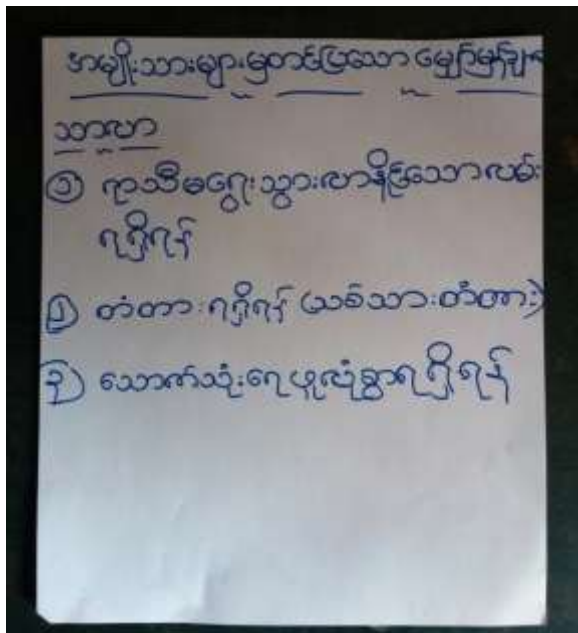 အမျိုးသားများမှတင်ပြသော မျှော်မှန်းချက်
သာလာ
၁ ရာသီမရွေးသွားလာနိုင်သောလမ်း
ရရှိရန်
၂ တံတားရရှိရန် (သစ်သားတံတား)
၃ သောက်သုံးရေဖူလုံစွာရရှိရန်